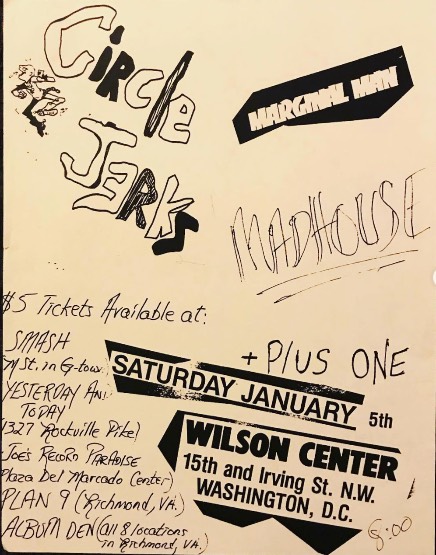 Circle
Jerks
MARGINAL MAN
MADHOUSE
+ PlUS ONE
$5 Tickets Available at:
SMASH
St. in G-town
YESTERDAY AND
TODAY
1327 Rockville Pike)
JOE'S RECORD PARADISE
Plaza Del Marcado Center)
PLAN 9 (Richmond, VA.)
ALBUM DEN (all 8 locations
in Richmond, VA.)
SATURDAY JANUARY 5th
WILSON CENTER
15th and Irving St. N.W.
WASHINGTON, D.C.
8:00